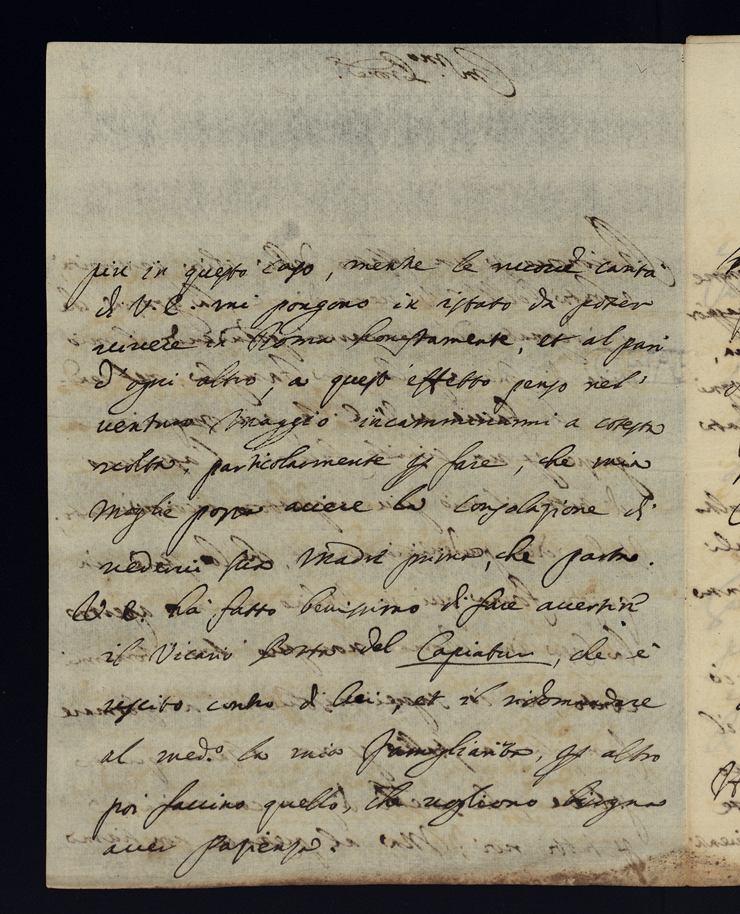 più in questo caso, mentre le carità
di V. E. mi pongono in istato da poter
vivere in Roma honestamente, et al pari
d'ogni altro, a quest'effetto penso nel
venturo Maggio incamminarmi a cotesta
volta, particolarmente p fare, che mia
Moglie possa avere la consolazione di
vedervi sua Madre prima, che parta.
V. E. ha fatto benissimo di fare avertire
il Vicario del Capiatur, che è
uscito contro di lui, et il ridomandare
al med.º la mia Famigliarità, p altro
poi faccino quello, che vogliono bisogna
aver pazienza.